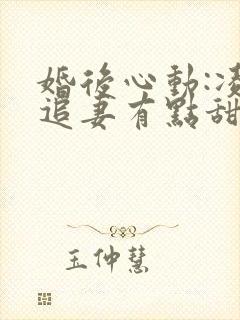 婚後心動:凌
追妻有點甜
玉仲慧